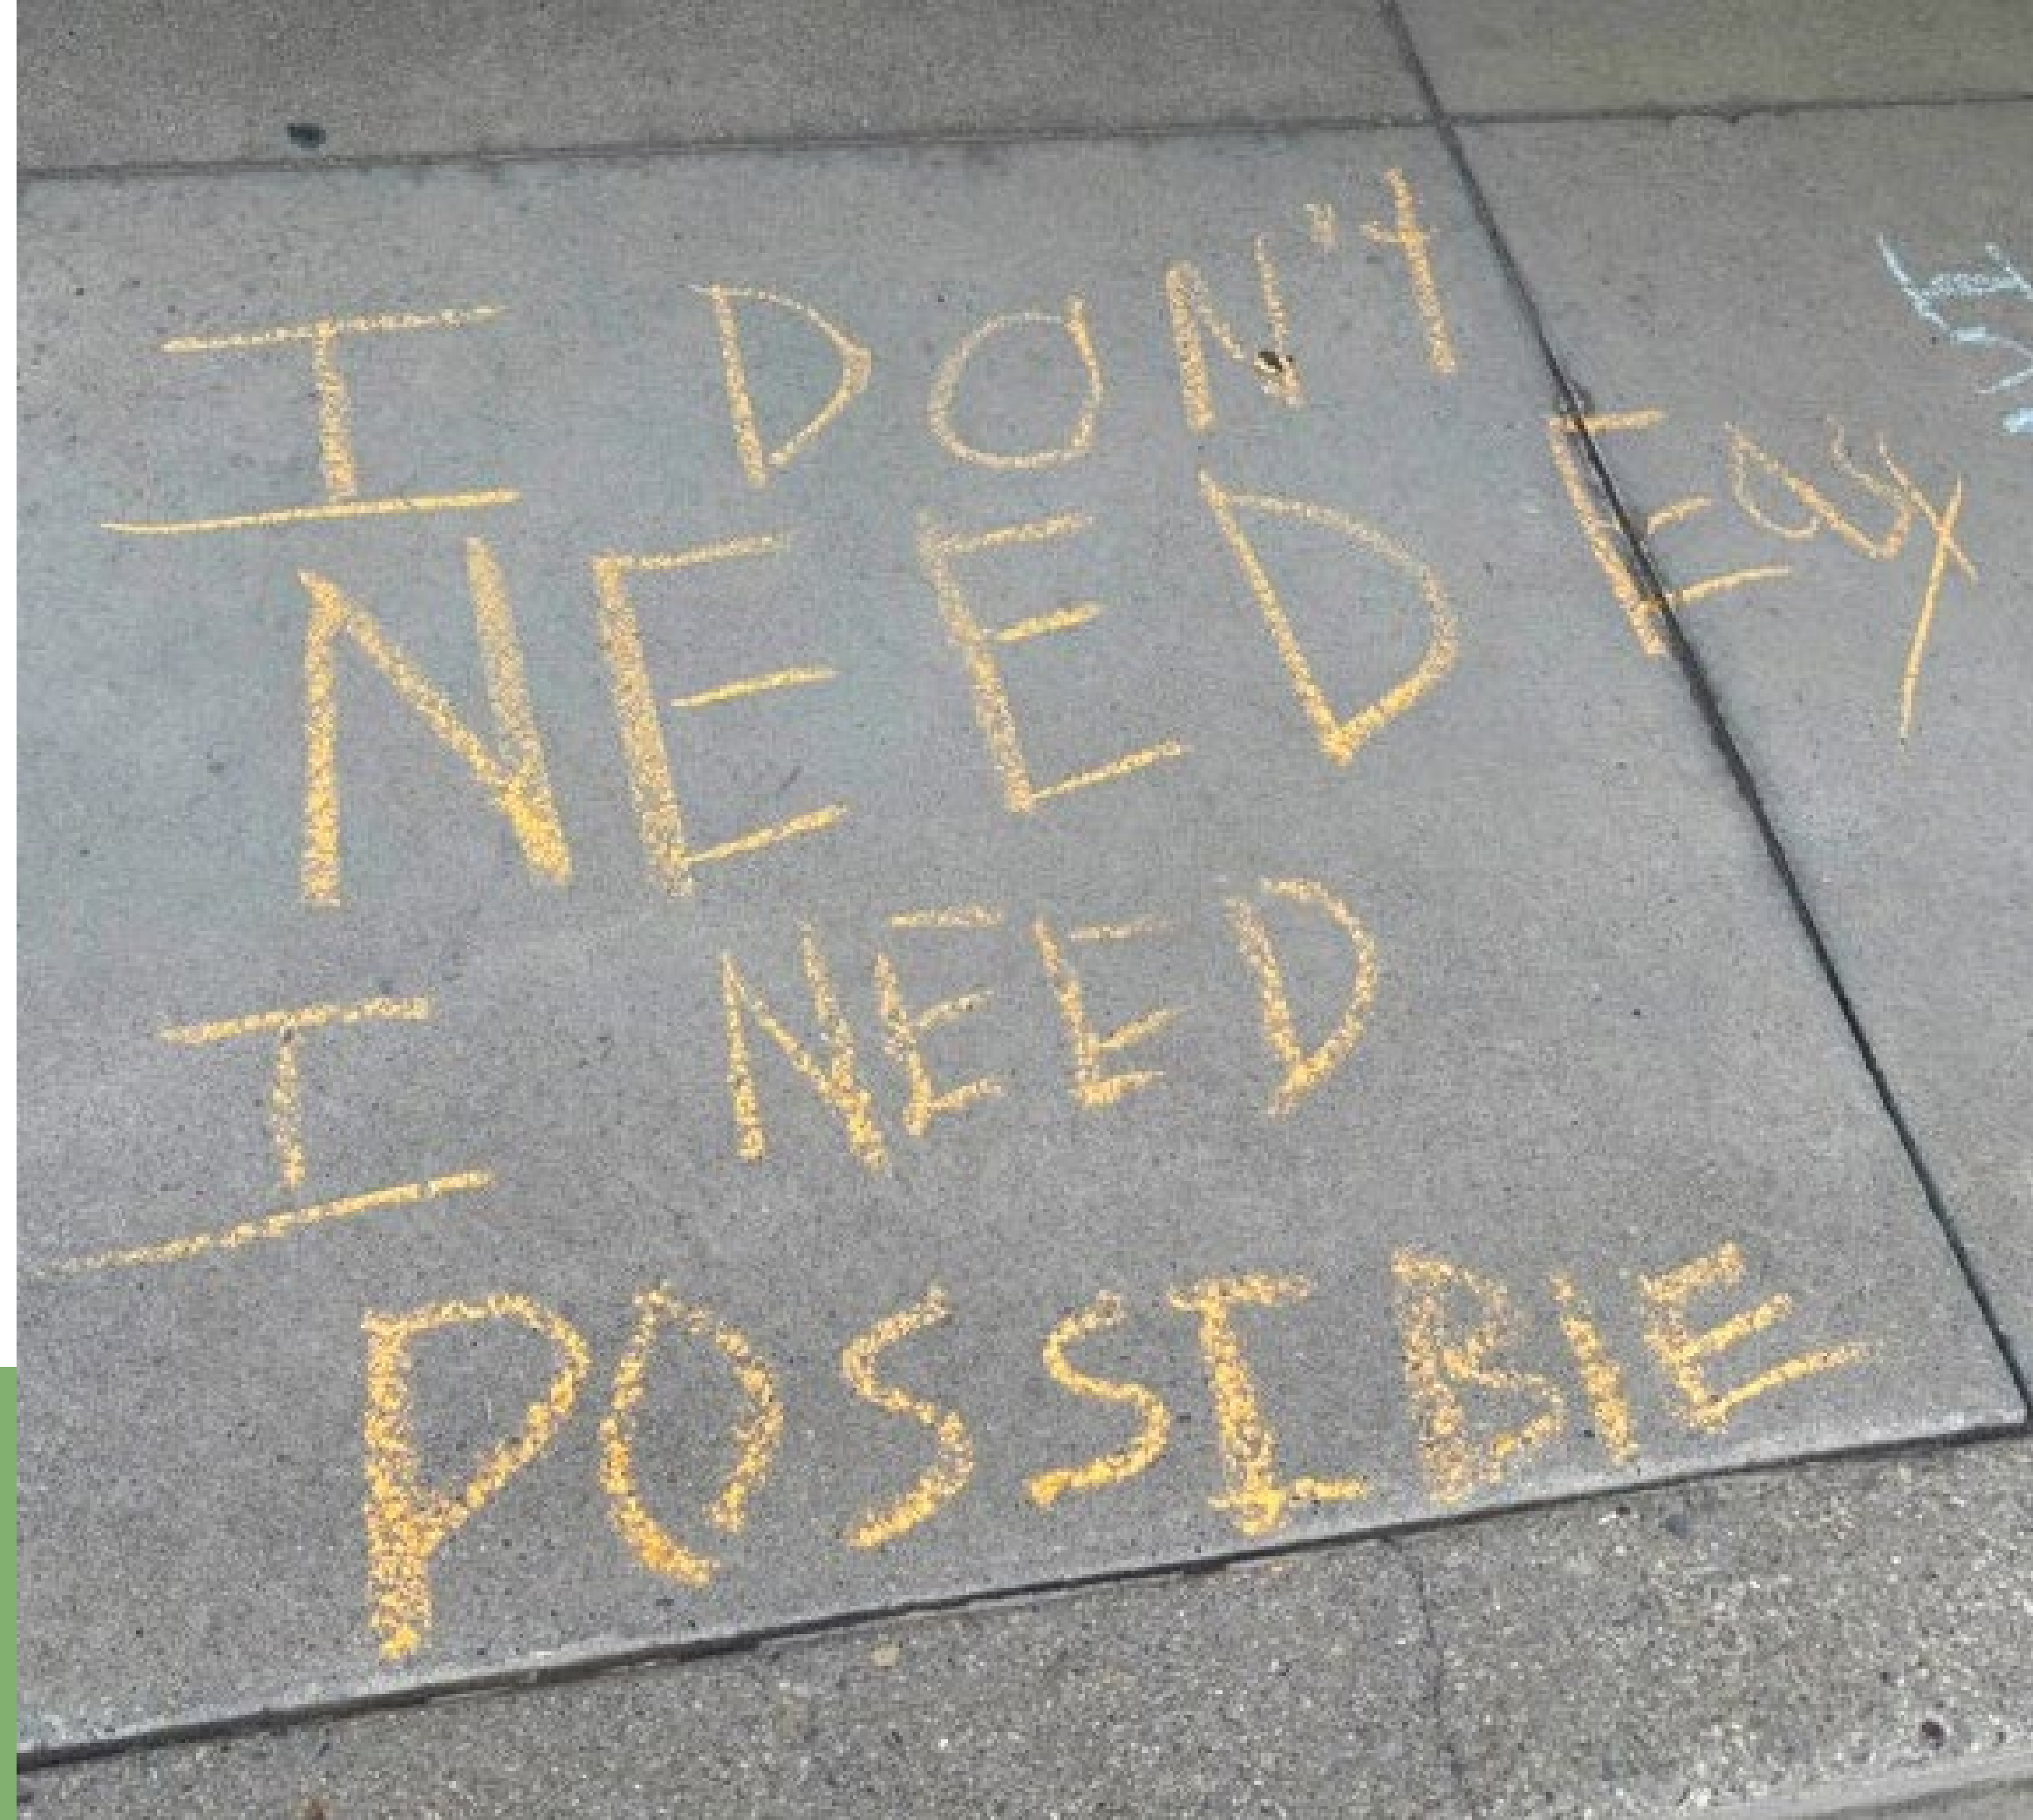 I DON'T
NEED EASY
I NEED
POSSIBLE